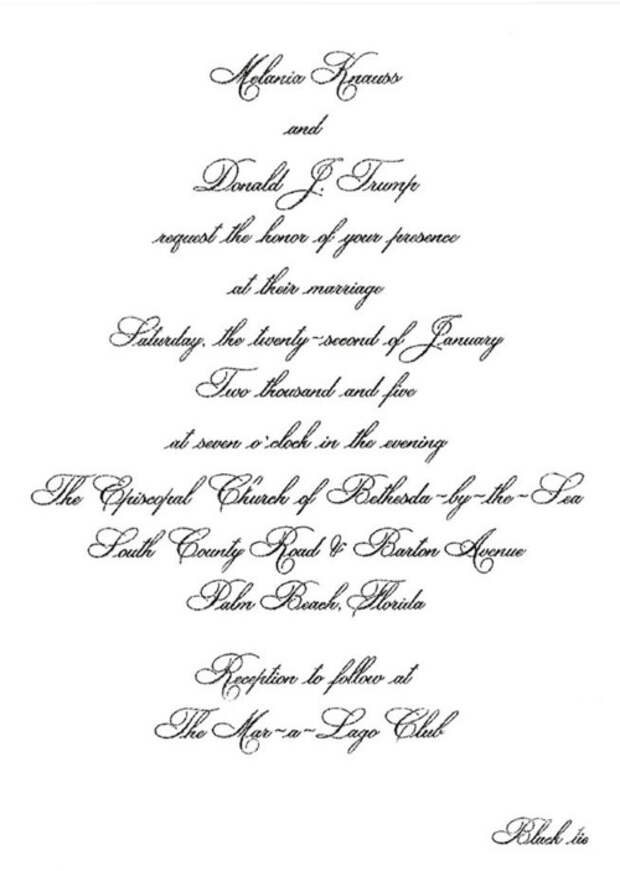 Melania Knauss
and
Donald J. Trump
request the honor of your presence
at their marriage
Saturday, the twenty~second of January
Two thousand and five
at seven o'clock in the evening
The Episcopal Church of Bethesda~by~the~Sea
South County Road & Barton Avenue
Palm Beach, Florida
Reception to follow at
The Mar~a~Lago Club
Black tie